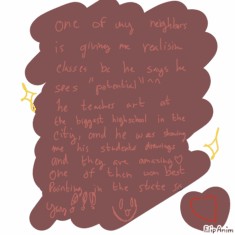 one of my neighbors
is giving me realism
classes bc he says he
sees "potential" ^^
he teaches art at
the biggest highschool in the
city, and he was showing
me his students drawings
and they are amazing ♡
One of them won best
Painting in the state
FlipAnim